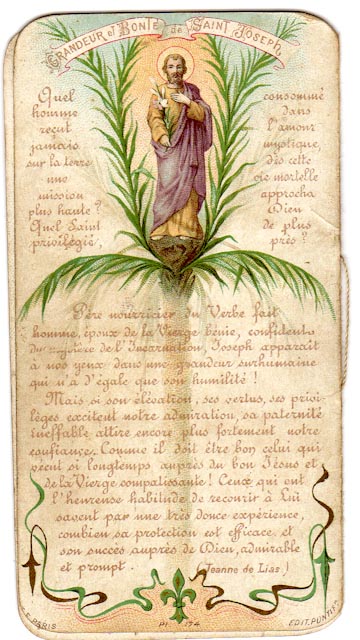 GRANDEUR et BONTÉ de SAINT JOSEPH.
Quel
homme
reçut
jamais
sur la terre
une
mission
plus haute ?
Quel Saint
privilégié,
consommé
dans
l'amour
mystique,
dès cette
vie mortelle
approcha
Dieu
de plus
près ?
Père nourricier du Verbe fait
homme, époux de la Vierge bénie, confident
du mystère de l'Incarnation, Joseph apparaît
à nos yeux dans une grandeur surhumaine
qui n'a d'égale que son humilité !
Mais si son élévation, ses vertus, ses privi
lèges excitent notre admiration, sa paternité
ineffable attire encore plus fortement notre
confiance. Comme il doit être bon celui qui
vécut si longtemps auprès du bon Jésus et
de la Vierge compatissante ! Ceux qui ont
l'heureuse habitude de recourir à Lui
savent par une très douce expérience,
combien sa protection est efficace et
son succès auprès de Dieu, admirable
et prompt. (Jeanne de Lias.)
PARIS
Pl. 174
EDIT. PONTIF.